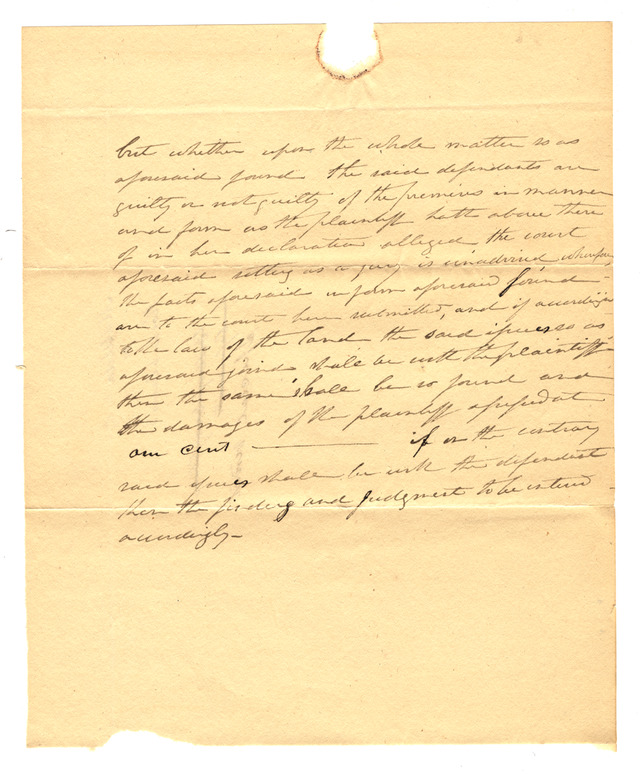 but whether upon the whole matter so as
aforesaid found the said defendants are
guilty or not guilty of the premises in manner
and form as the plaintiff hath above there
of in her declaration alleged, the court
aforesaid sitting as a jury is unadvised wherefore
the facts aforesaid in form aforesaid found
are to the court here submitted, and if according
to the law of the land the said issues so as
aforesaid joined shall be with the plaintiff
then the same shall be so found and
the damages of the plaintiff assessed at
one cent — if on the contrary
said issues shall be with the defendant
then the finding and judgment to be entered
accordingly—